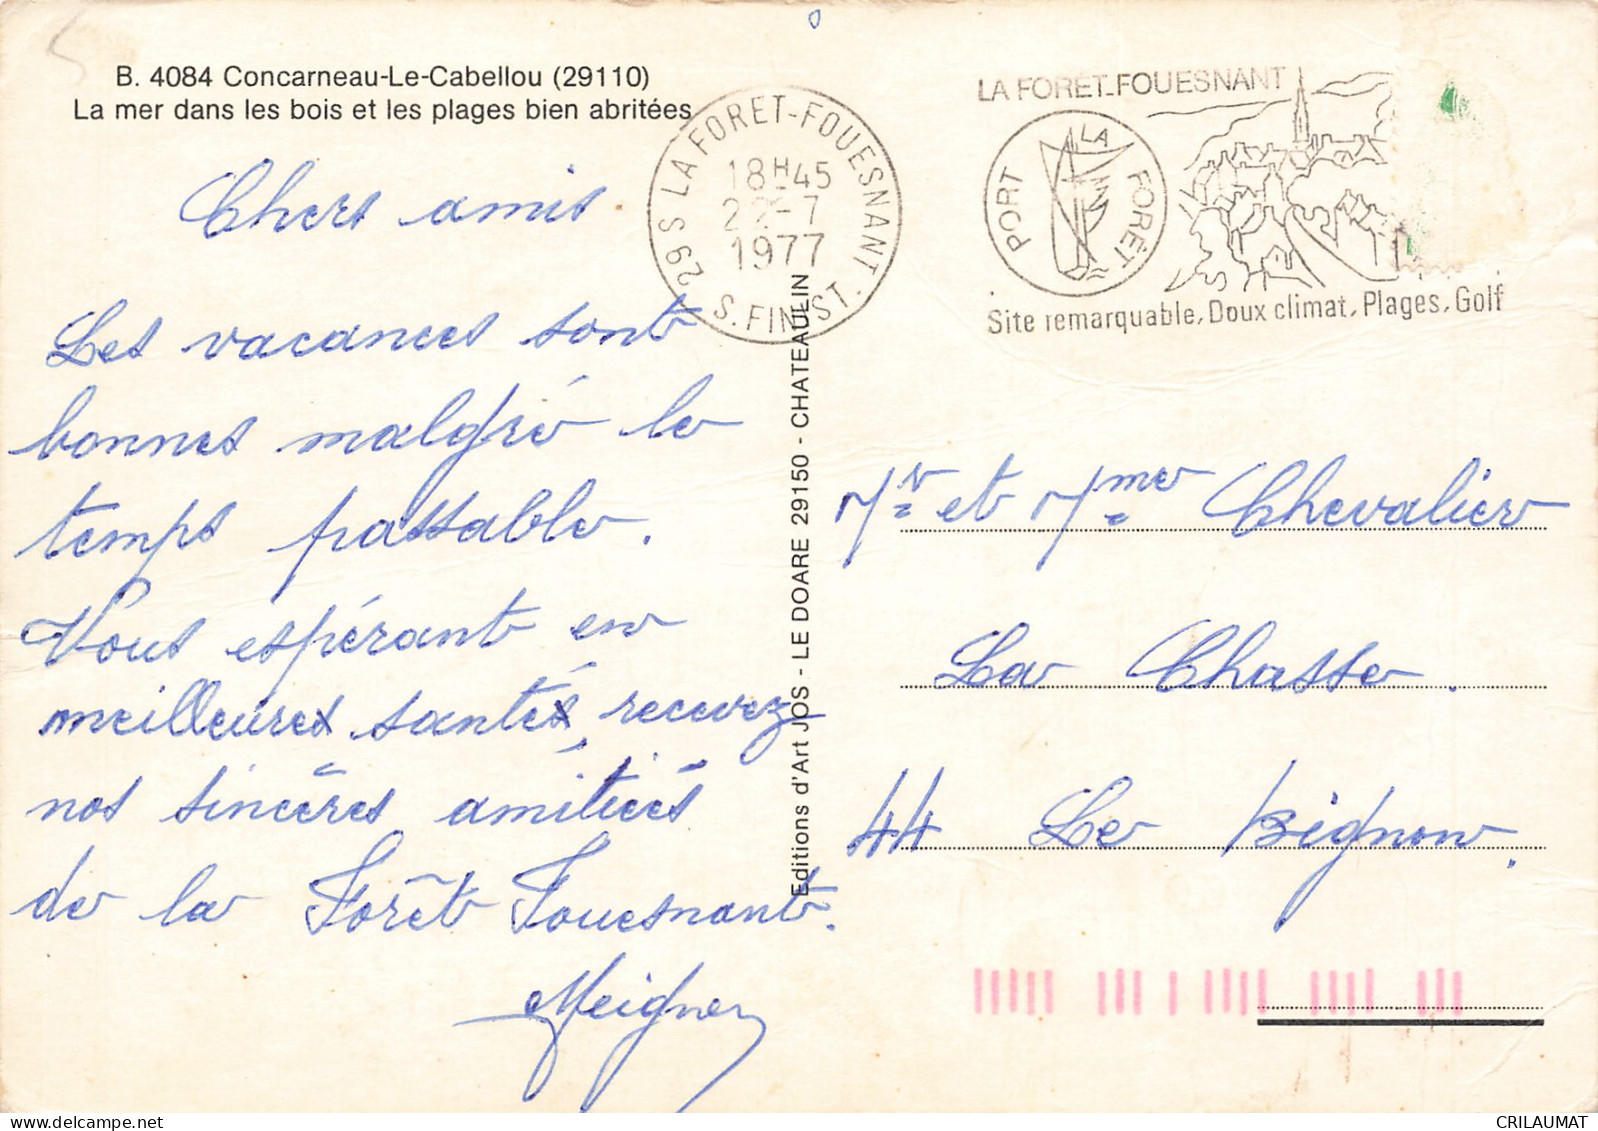 B. 4084 Concarneau-Le-Cabellou (29110)
La mer dans les bois et les plages bien abritées
Chers amis
Les vacances sont
bonnes malgré le
temps passable.
Vous espérant en
meilleures santés, recevez
nos sincères amitiés
de la Forêt Fouesnant.
Meigner
Editions d'Art JOS - LE DOARE 29150 - CHATEAULIN
29 S LA FORET-FOUESNANT
18H45
22-7
1977
S. FINIST.
LA FORET-FOUESNANT
PORT LA FORÊT
Site remarquable, Doux climat, Plages, Golf
Mr et Mme Chevalier
La Chasse.
44 Le Bignon.
CRILAUMAT
delcampe.net